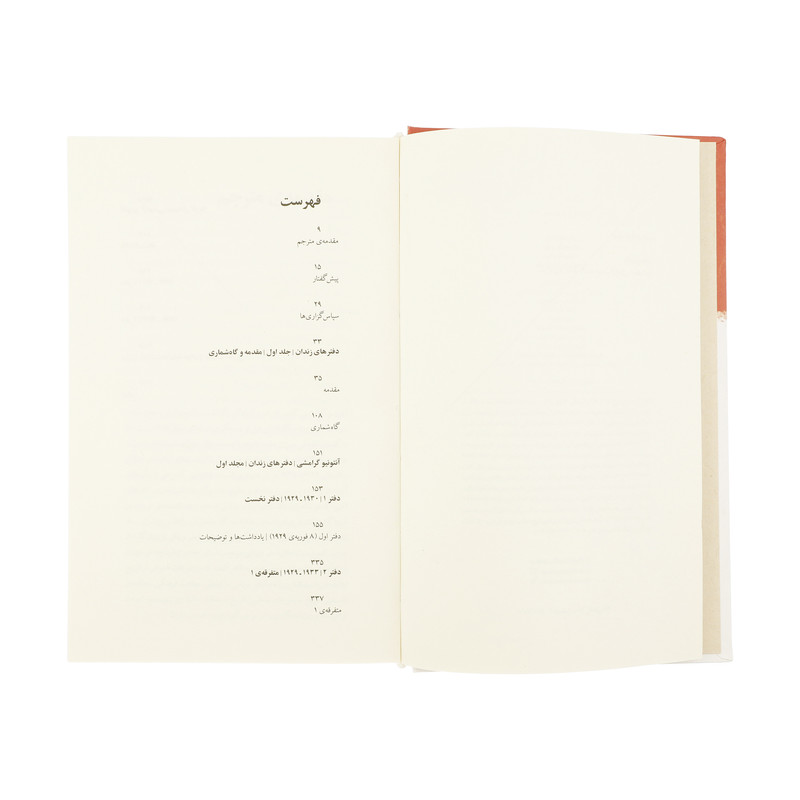 فهرست
۹
مقدمه‌ی مترجم
۱۵
پیش‌گفتار
۲۹
سپاس‌گزاری‌ها
۳۳
دفترهای زندان | جلد اول | مقدمه و گاه‌شماری
۳۵
مقدمه
۱۰۸
گاه‌شماری
۱۵۱
آنتونیو گرامشی | دفترهای زندان | مجلد اول
۱۵۳
دفتر ۱ | ۱۹۳۰ ـ ۱۹۲۹ | دفتر نخست
۱۵۵
دفتر اول (۸ فوریه‌ی ۱۹۲۹) | یادداشت‌ها و توضیحات
۳۳۵
دفتر ۲ | ۱۹۳۳ ـ ۱۹۲۹ | متفرقه‌ی ۱
۳۳۷
متفرقه‌ی ۱